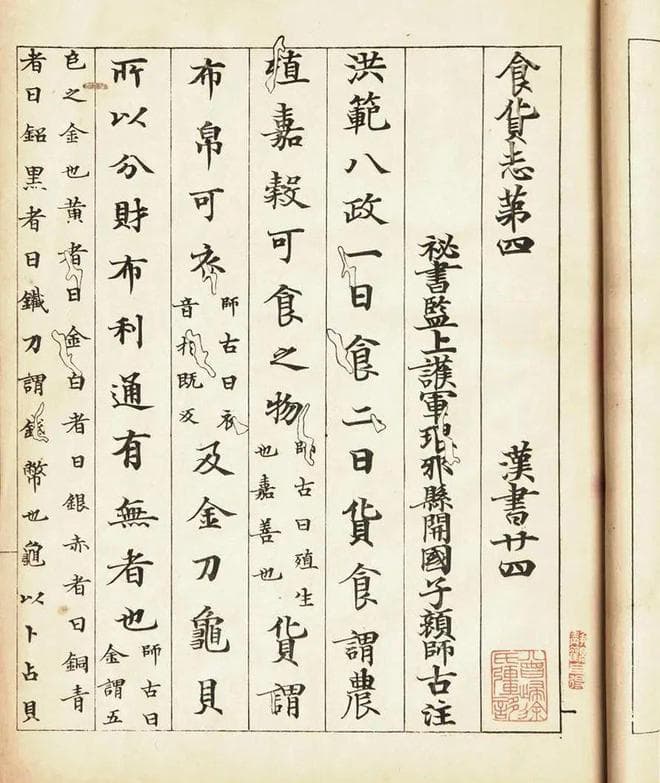 食貨志第四 漢書廿四
祕書監上護軍琅邪縣開國子顏師古注
洪範八政一曰食二曰貨食謂農
殖嘉穀可食之物師古曰殖生也嘉善也貨謂
布帛可衣師古曰衣音於既反及金刀龜貝
所以分財布利通有無者也師古曰金謂五
色之金也黃者曰金白者曰銀赤者曰銅青
者曰鉛黑者曰鐵刀謂錢幣也龜以卜占貝